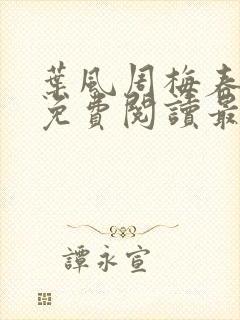 葉風周梅春
免費閱讀最
譚永宣